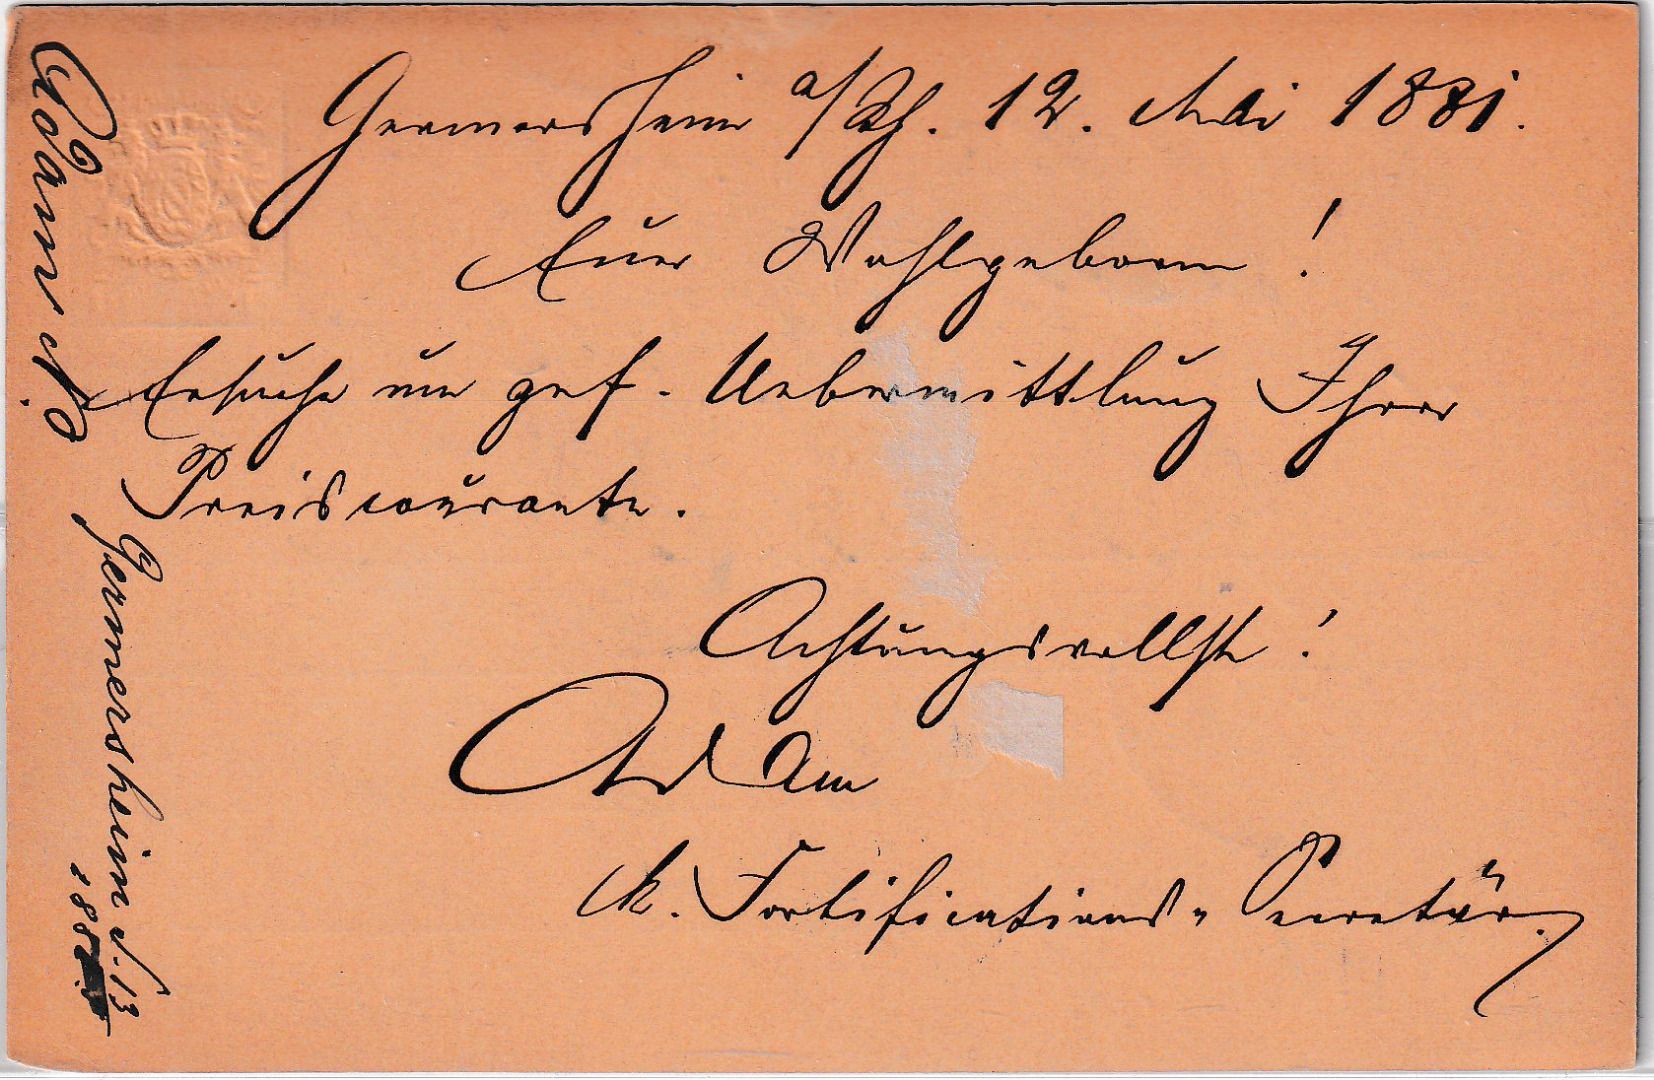 Germersheim a/Rh. 12. Mai 1881.
Euer Wohlgeboren!
Ersuche um gef. Uebermittlung Ihrer
Preiscourante.
Achtungsvollst!
Adam
k. Fortifications-Secretär.
Adam
Germersheim 13